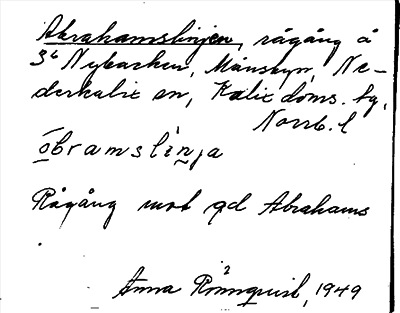 Abrahamslinjen, rågång å
3⁶ Nybacken, Månsbyn, Ne-
derkalix sn, Kalix doms. tg,
Norrb. l
òbramslìnja
Rågång mot gd Abrahams
Anna Rönnquist, 1949